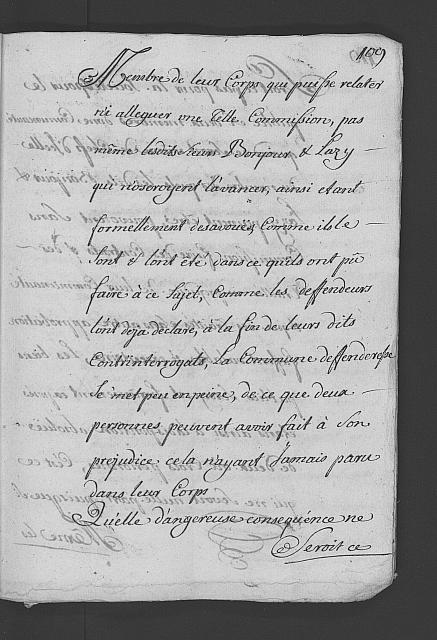 109
Membre de leur Corps qui puisse relater
ni alleguer une Telle Commission, pas
même lesdits sieurs Bonjour & Lazy
qui n'oseroyent l'avancer, ainsi etant
formellement desavoués, Comme ils le
sont & l'ont été dans ce qu'ils ont pû
faire à ce Sujet, Comme les deffendeurs
l'ont deja declaré, à la fin de leurs dits
Contrinterrogats, la Commune deffenderesse
Se met peu en peine, de ce que deux
personnes peuvent avoir fait à Son
prejudice cela n'ayant Jamais paru
dans leur Corps
Qu'elle dangereuse consequence ne
Seroit ce